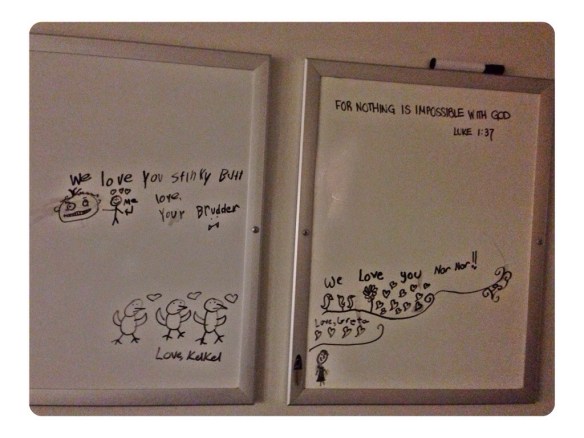 We love you stinky Butt
Me
love
Your Brudder
Love, KelKel
FOR NOTHING IS IMPOSSIBLE WITH GOD
LUKE 1:37
We Love you Nor Nor!!
Love, Loreta